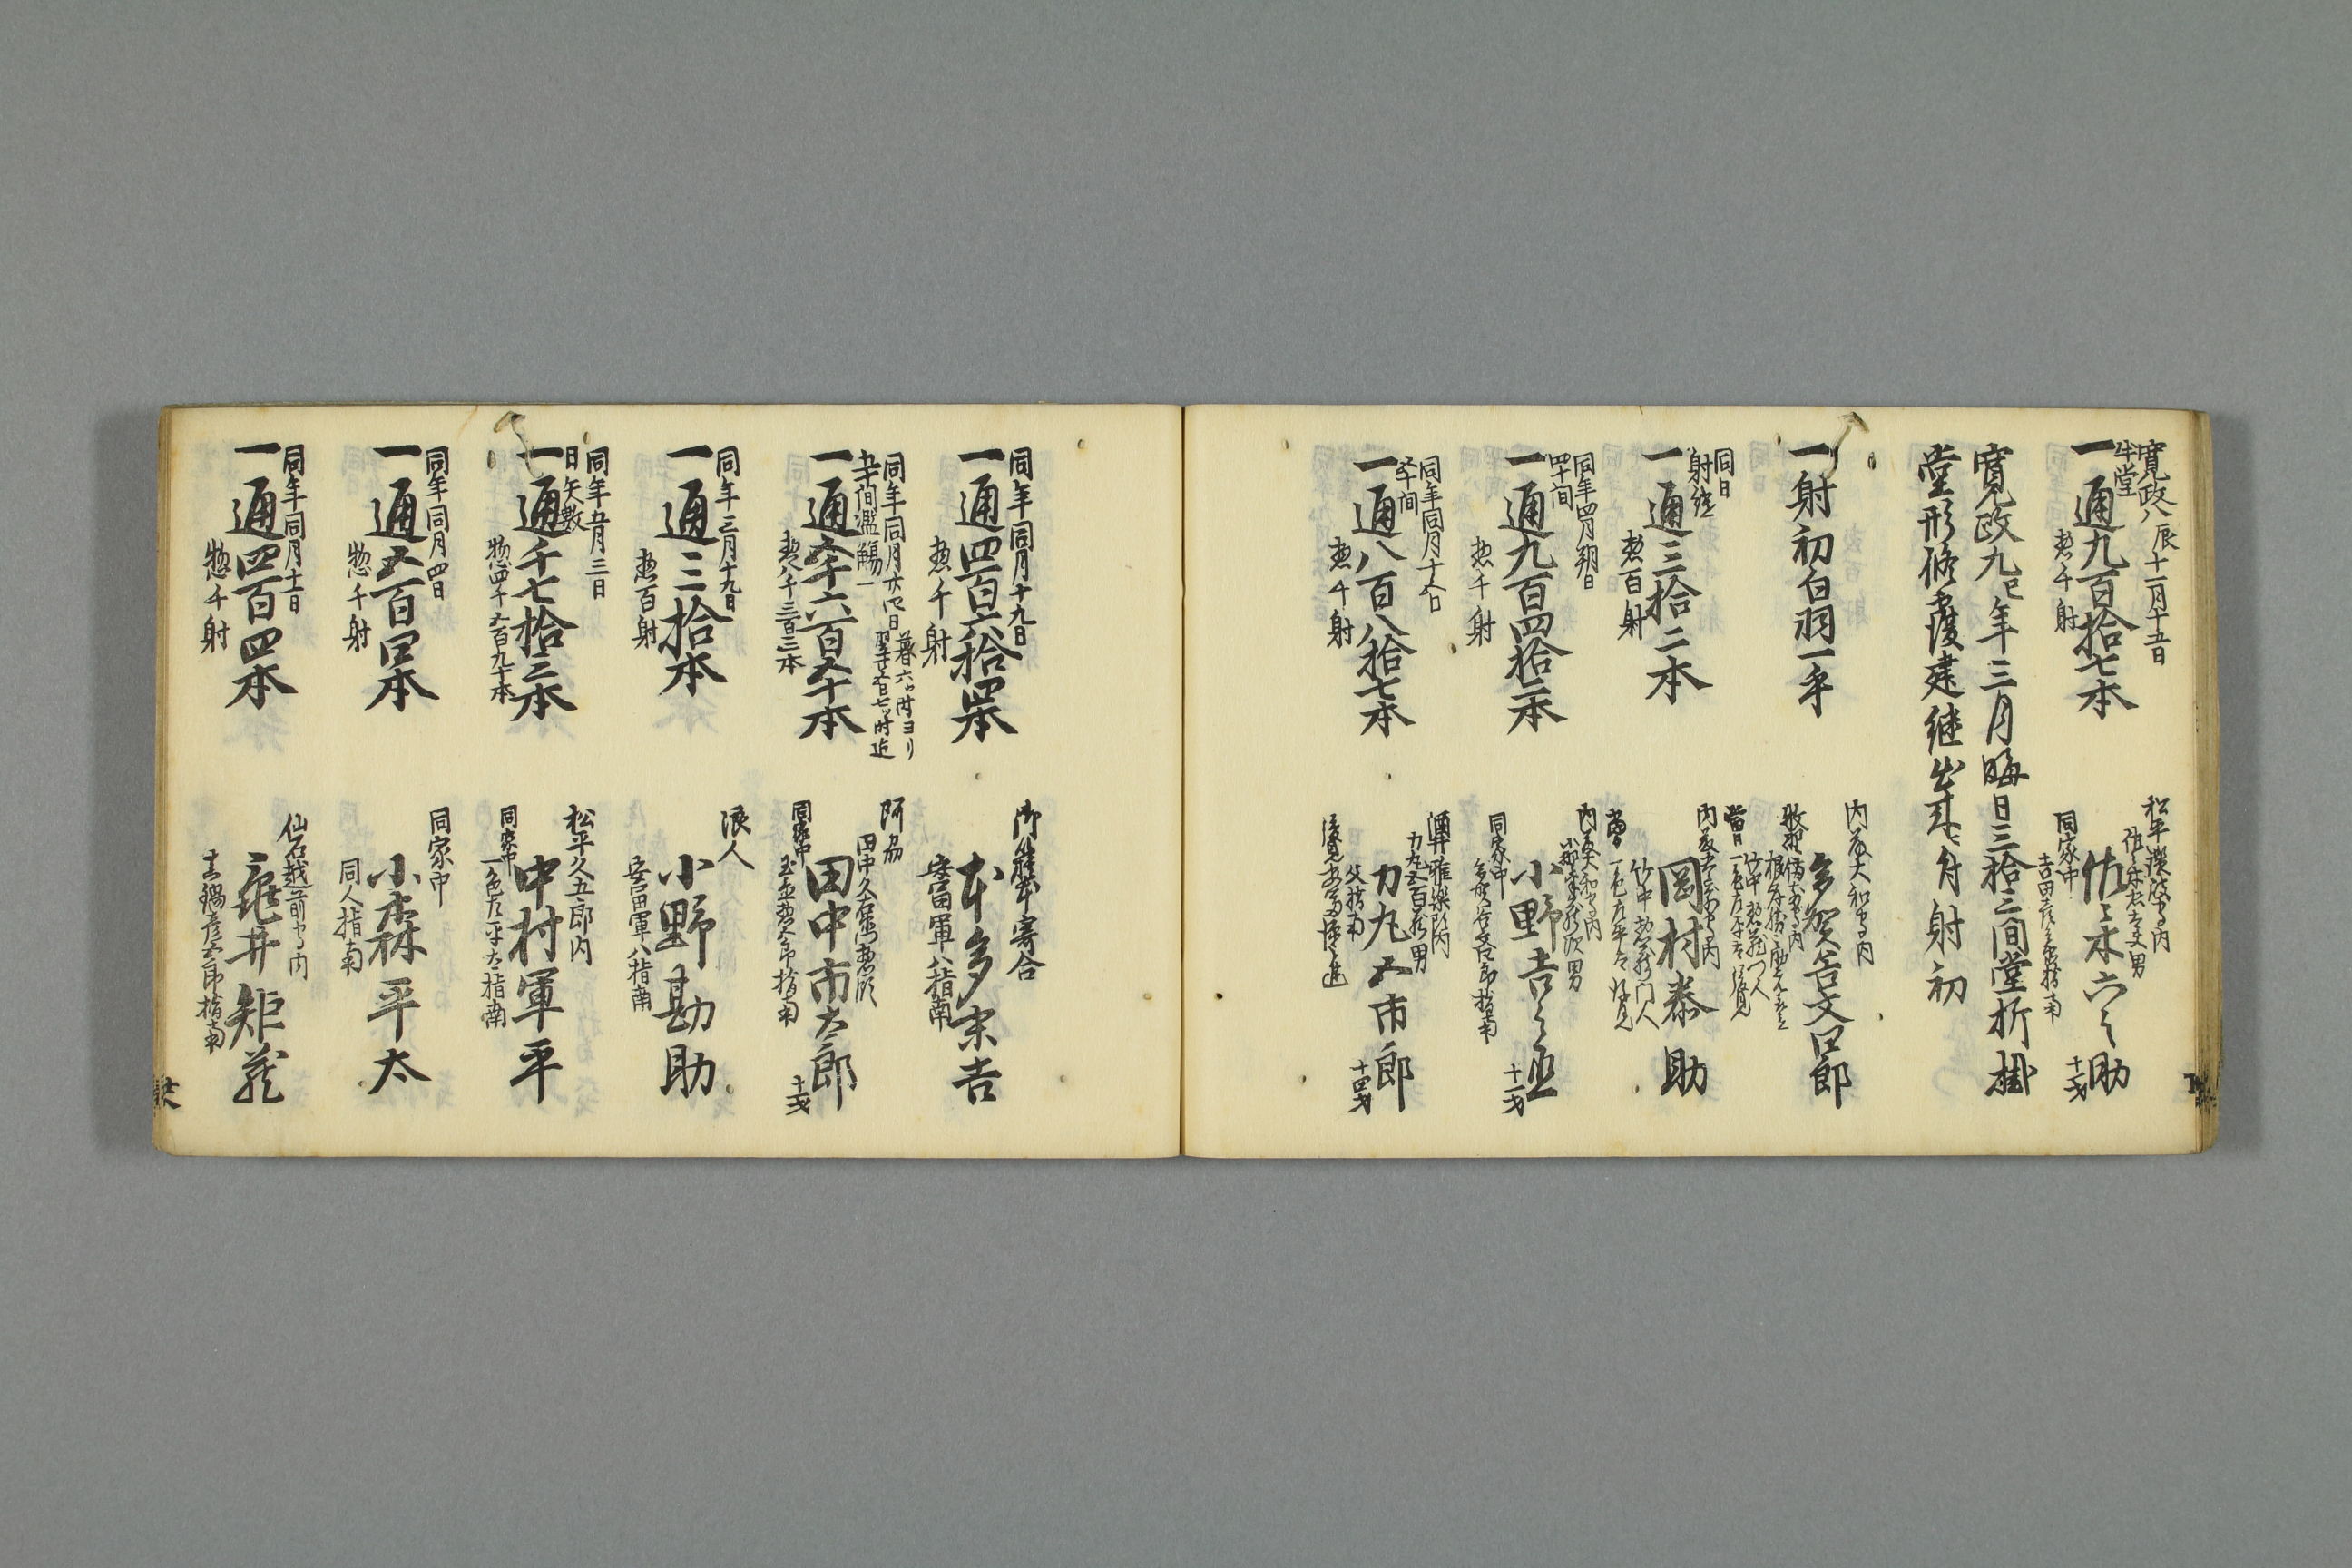 寛政八辰十一月十五日
半堂
一通九百拾七本
惣千射
松平
同家中
佐々木六之助
寛政九巳年三月晦日三拾三間堂折掛
堂形修覆建継出来七月射初
一射初白羽一手
内藤大和守内
多賀谷文四郎
同日
射継
一通三拾二本
惣百射
岡村泰助
同年四月朔日
四十間
一通九百四拾二本
惣千射
内藤大和守内
同家中
小野吉之丞
十一才
同年同月十八日
五十間
一通八百八拾七本
惣千射
酒井雅楽頭内
力丸五百蔵男
父指南
力丸五市郎
十四才
同年同月十九日
一通四百六拾四本
惣千射
御旗本寄合
本多末吉
安富軍八指南
同年同月廿四日
暮六ツ時ヨリ
翌廿五日七ツ時迄
五十間濫觴一
一通五千六百五十本
惣八千三百三本
阿州
同家中
田中市太郎
十一才
同年三月十九日
一通三拾本
惣百射
浪人
小野勘助
安富軍八指南
同年五月三日
日矢数
一通千七拾三本
惣四千五百九十本
松平久五郎内
同家中
中村軍平
一色左平太指南
同年同月四日
一通五百四本
惣千射
同家中
小森平太
同人指南
同年同月十一日
一通四百四本
惣千射
仙石越前守内
亀井矩蔵